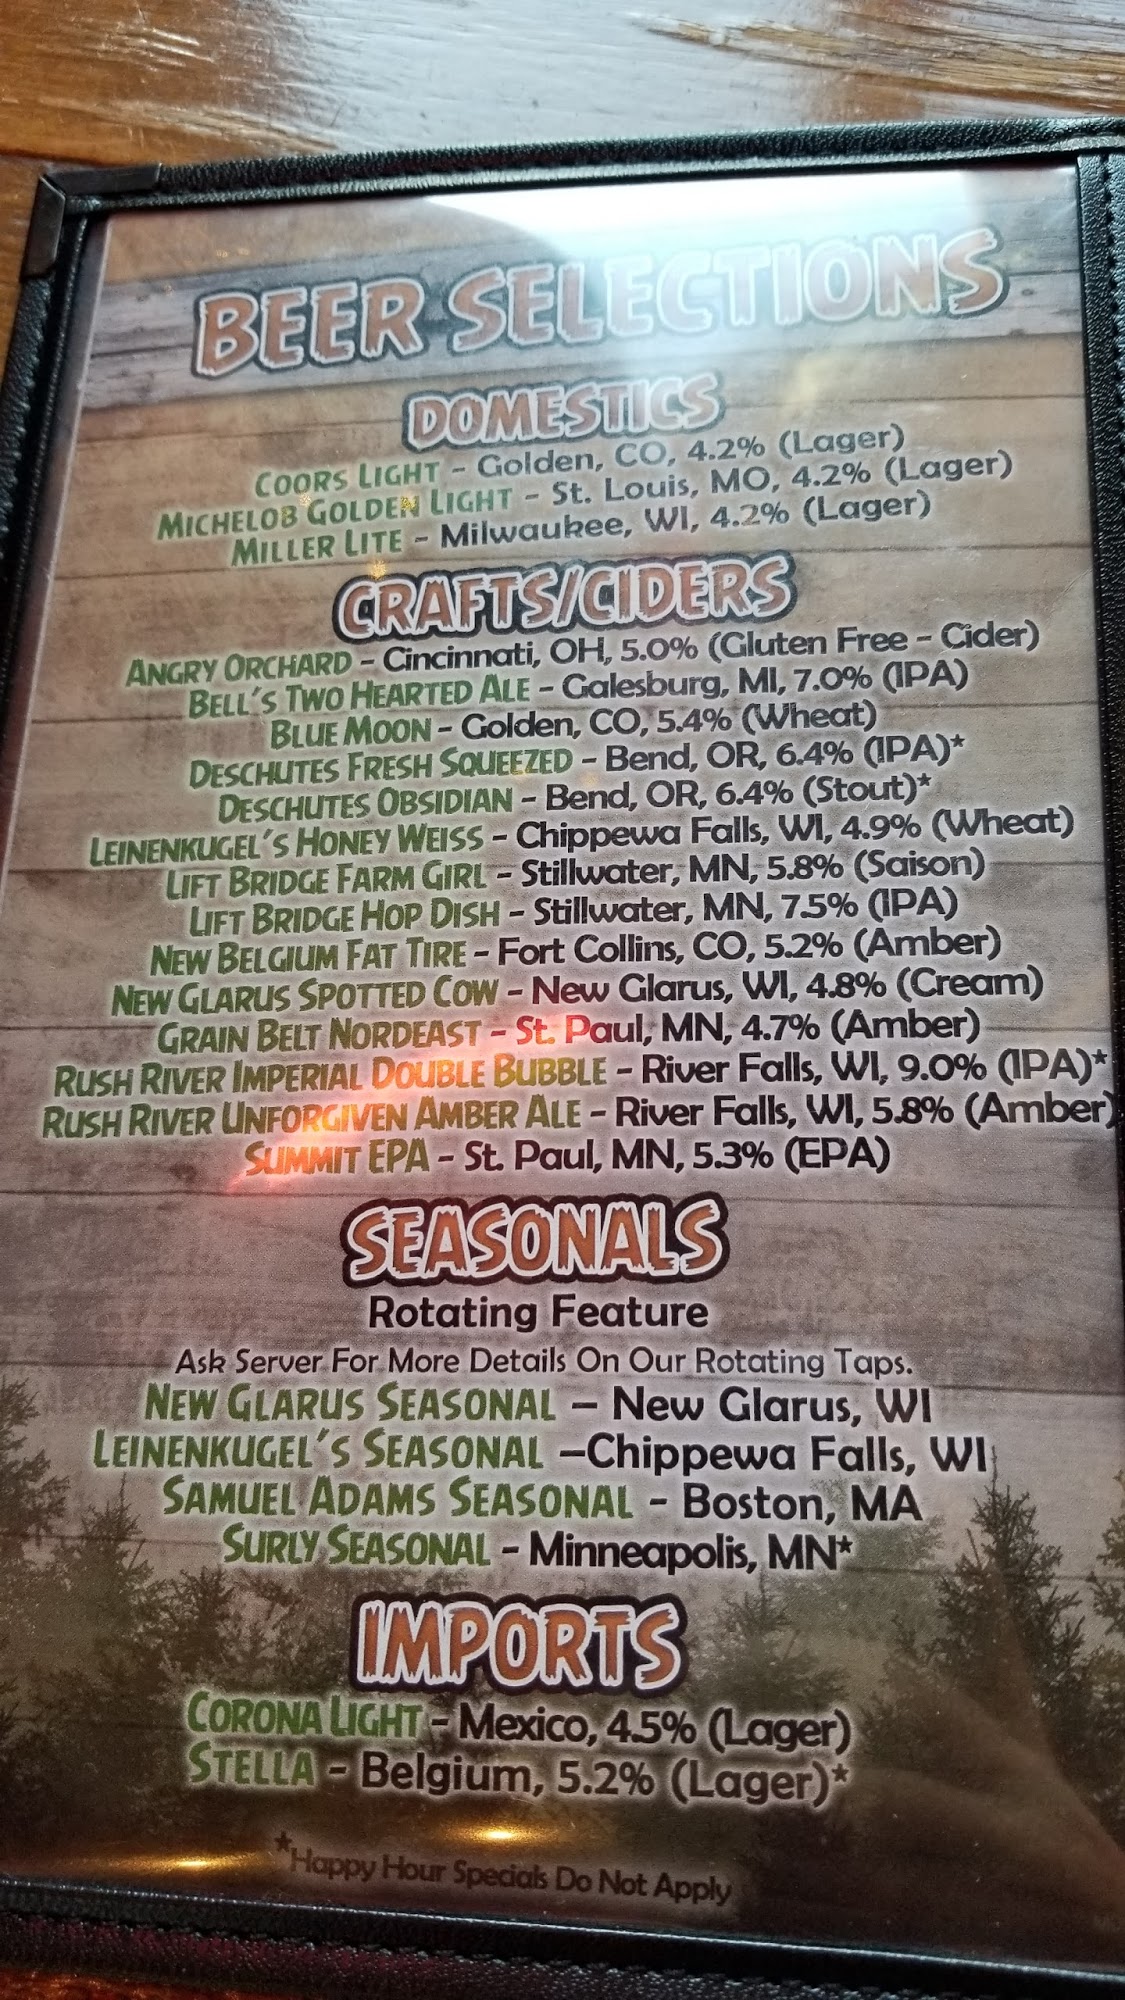 BEER SELECTIONS
DOMESTICS
COORS LIGHT - Golden, CO, 4.2% (Lager)
MICHELOB GOLDEN LIGHT - St. Louis, MO, 4.2% (Lager)
MILLER LITE - Milwaukee, WI, 4.2% (Lager)
CRAFTS/CIDERS
ANGRY ORCHARD - Cincinnati, OH, 5.0% (Gluten Free - Cider)
BELL'S TWO HEARTED ALE - Galesburg, MI, 7.0% (IPA)
BLUE MOON - Golden, CO, 5.4% (Wheat)
DESCHUTES FRESH SQUEEZED - Bend, OR, 6.4% (IPA)*
DESCHUTES OBSIDIAN - Bend, OR, 6.4% (Stout)*
LEINENKUGEL'S HONEY WEISS - Chippewa Falls, WI, 4.9% (Wheat)
LIFT BRIDGE FARM GIRL - Stillwater, MN, 5.8% (Saison)
LIFT BRIDGE HOP DISH - Stillwater, MN, 7.5% (IPA)
NEW BELGIUM FAT TIRE - Fort Collins, CO, 5.2% (Amber)
NEW GLARUS SPOTTED COW - New Glarus, WI, 4.8% (Cream)
GRAIN BELT NORDEAST - St. Paul, MN, 4.7% (Amber)
RUSH RIVER IMPERIAL DOUBLE BUBBLE - River Falls, WI, 9.0% (IPA)*
RUSH RIVER UNFORGIVEN AMBER ALE - River Falls, WI, 5.8% (Amber)
SUMMIT EPA - St. Paul, MN, 5.3% (EPA)
SEASONALS
Rotating Feature
Ask Server For More Details On Our Rotating Taps.
NEW GLARUS SEASONAL – New Glarus, WI
LEINENKUGEL'S SEASONAL –Chippewa Falls, WI
SAMUEL ADAMS SEASONAL - Boston, MA
SURLY SEASONAL - Minneapolis, MN*
IMPORTS
CORONA LIGHT - Mexico, 4.5% (Lager)
STELLA - Belgium, 5.2% (Lager)*
*Happy Hour Specials Do Not Apply